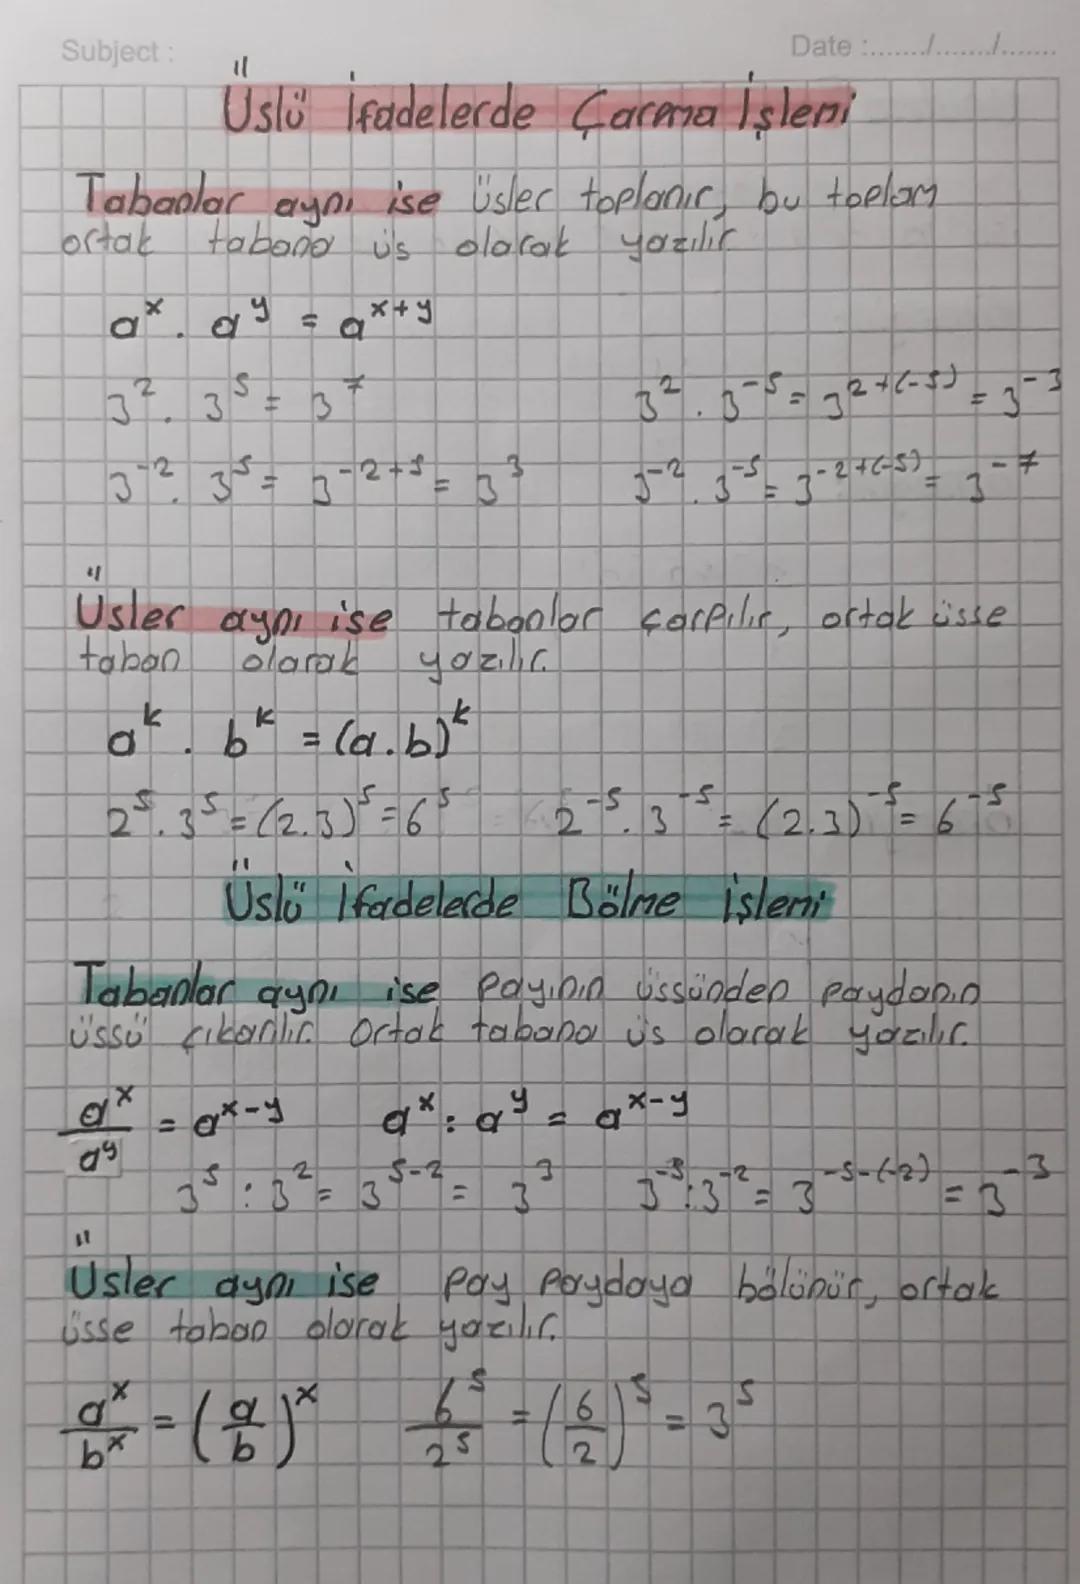 Subject :
Date :......./......./.......
Üslü İfadelerde Çarpma İşlemi
Tabanlar aynı ise üsler toplanır, bu toplam
ortak tabana üs olarak yazılır.
a^x . a^y = a^(x+y)
3^2 . 3^5 = 3^7    3^2 . 3^-5 = 3^(2+(-5)) = 3^-3
3^-2 . 3^5 = 3^(-2+5) = 3^3    3^-2 . 3^-5 = 3^(-2+(-5)) = 3^-7
Üsler aynı ise tabanlar çarpılır, ortak üsse
taban olarak yazılır.
a^k . b^k = (a.b)^k
2^5 . 3^5 = (2.3)^5 = 6^5    2^-5 . 3^-5 = (2.3)^-5 = 6^-5
Üslü İfadelerde Bölme işlemi
Tabanlar aynı ise payının üssünden paydanın
üssü çıkarılır. Ortak tabana üs olarak yazılır.
a^x/a^y = a^(x-y)    a^x : a^y = a^(x-y)
3^5 : 3^2 = 3^(5-2) = 3^3    3^-5 : 3^-2 = 3^(-5-(-2)) = 3^-3
Üsler aynı ise pay paydaya bölünür, ortak
üsse taban olarak yazılır.
a^x/b^x = (a/b)^x    6^5/2^5 = (6/2)^5 = 3^5